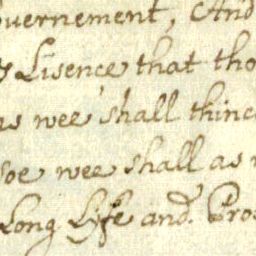 uernement, And
Lisence that tho
as wee shall thinc
soe wee shall as
Long Lyfe and. Pros